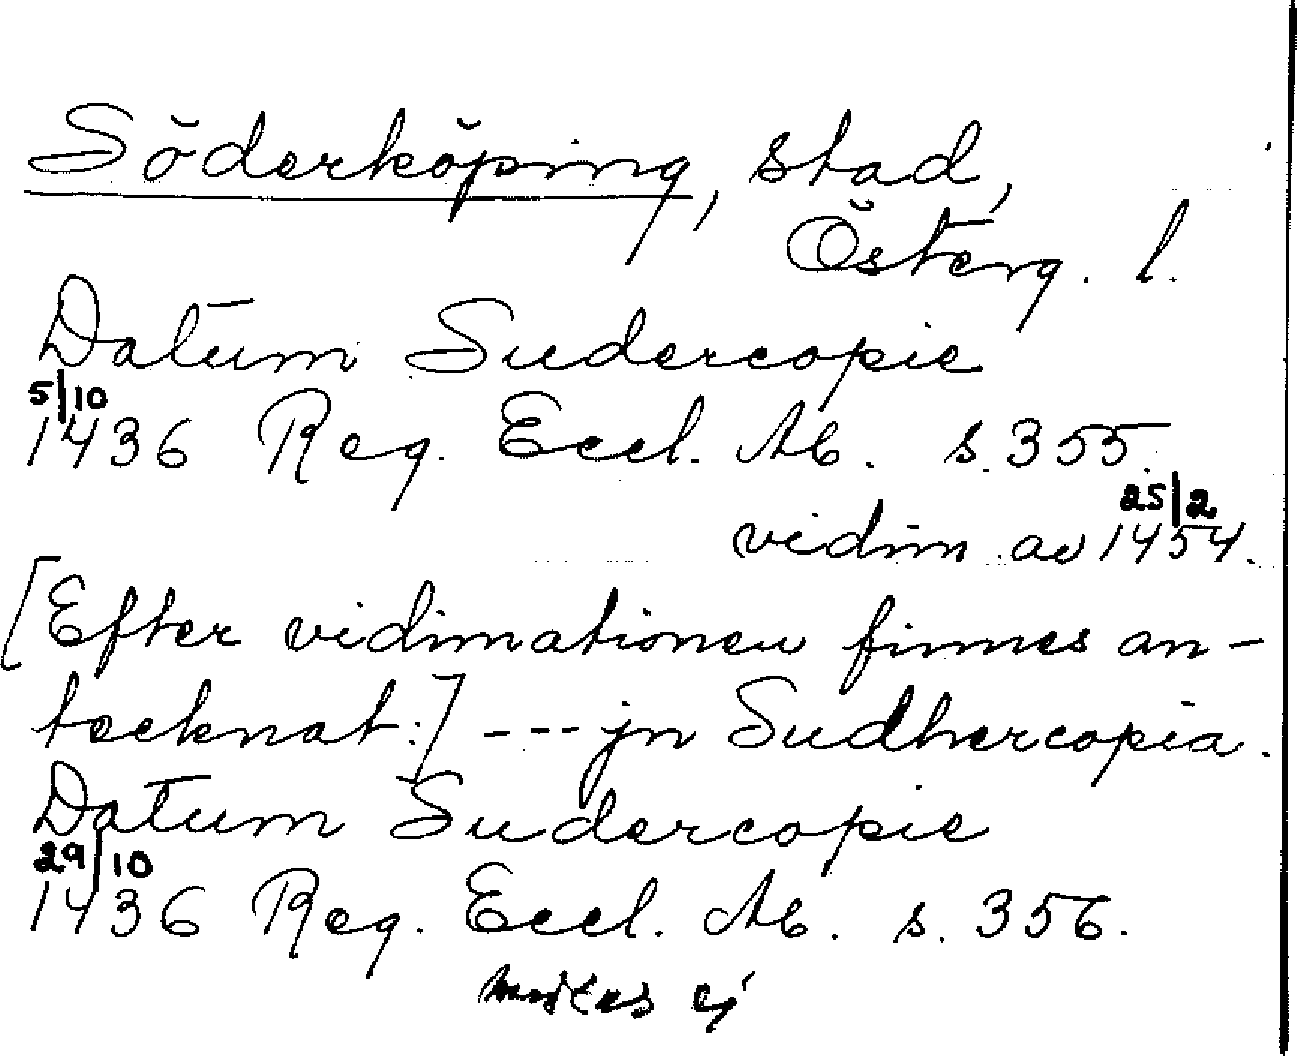 Söderköping, stad,
Österg. l.
Datum Sudercopie
5/10
1436 Reg. Eccl. Ab. s. 355.
25/2
vidim. av 1454.
[Efter vidimationen finnes an-
tecknat:] --- jn Sudhercopia.
Datum Sudercopie
29/10
1436 Reg. Eccl. Ab. s. 356.
ej